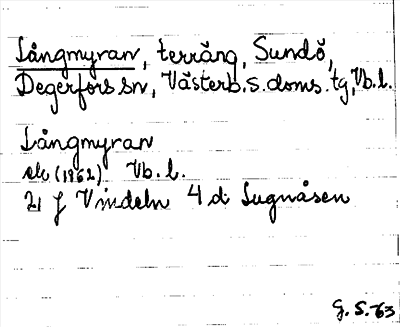 Långmyran, terräng, Sundö,
Degerfors sn, Västerb.s.doms.tg, Vb.l.
Långmyran
ek (1962) Vb.l.
21 J Vindeln 4 d Lugnåsen
G.S.63